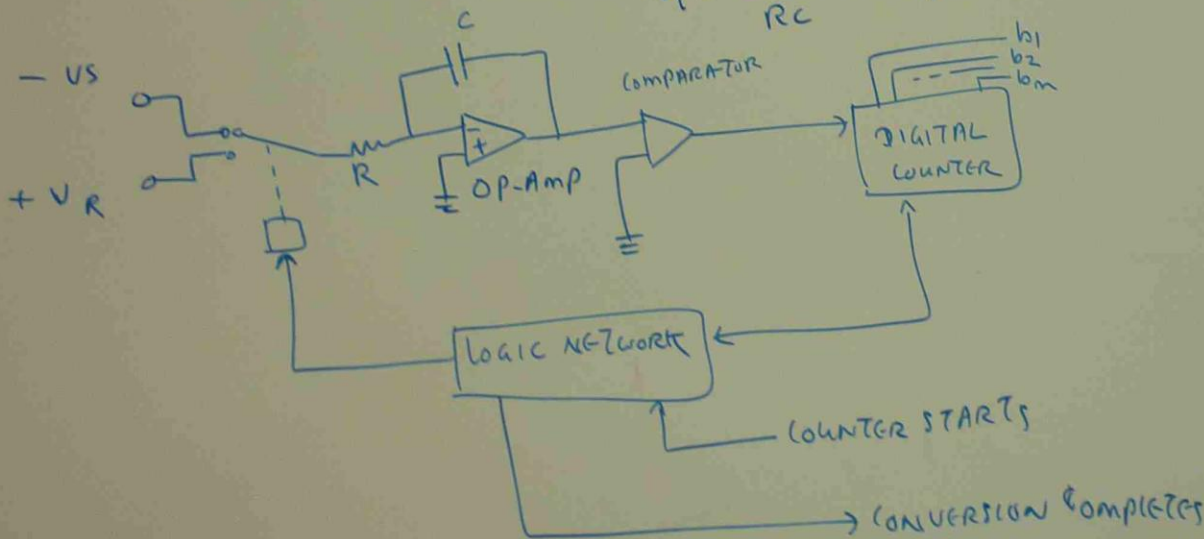 RC
C
- VS
+ VR
R
- +
OP-AMP
COMPARATOR
b1
b2
bn
DIGITAL
COUNTER
LOGIC NETWORK
COUNTER STARTS
CONVERSION COMPLETES